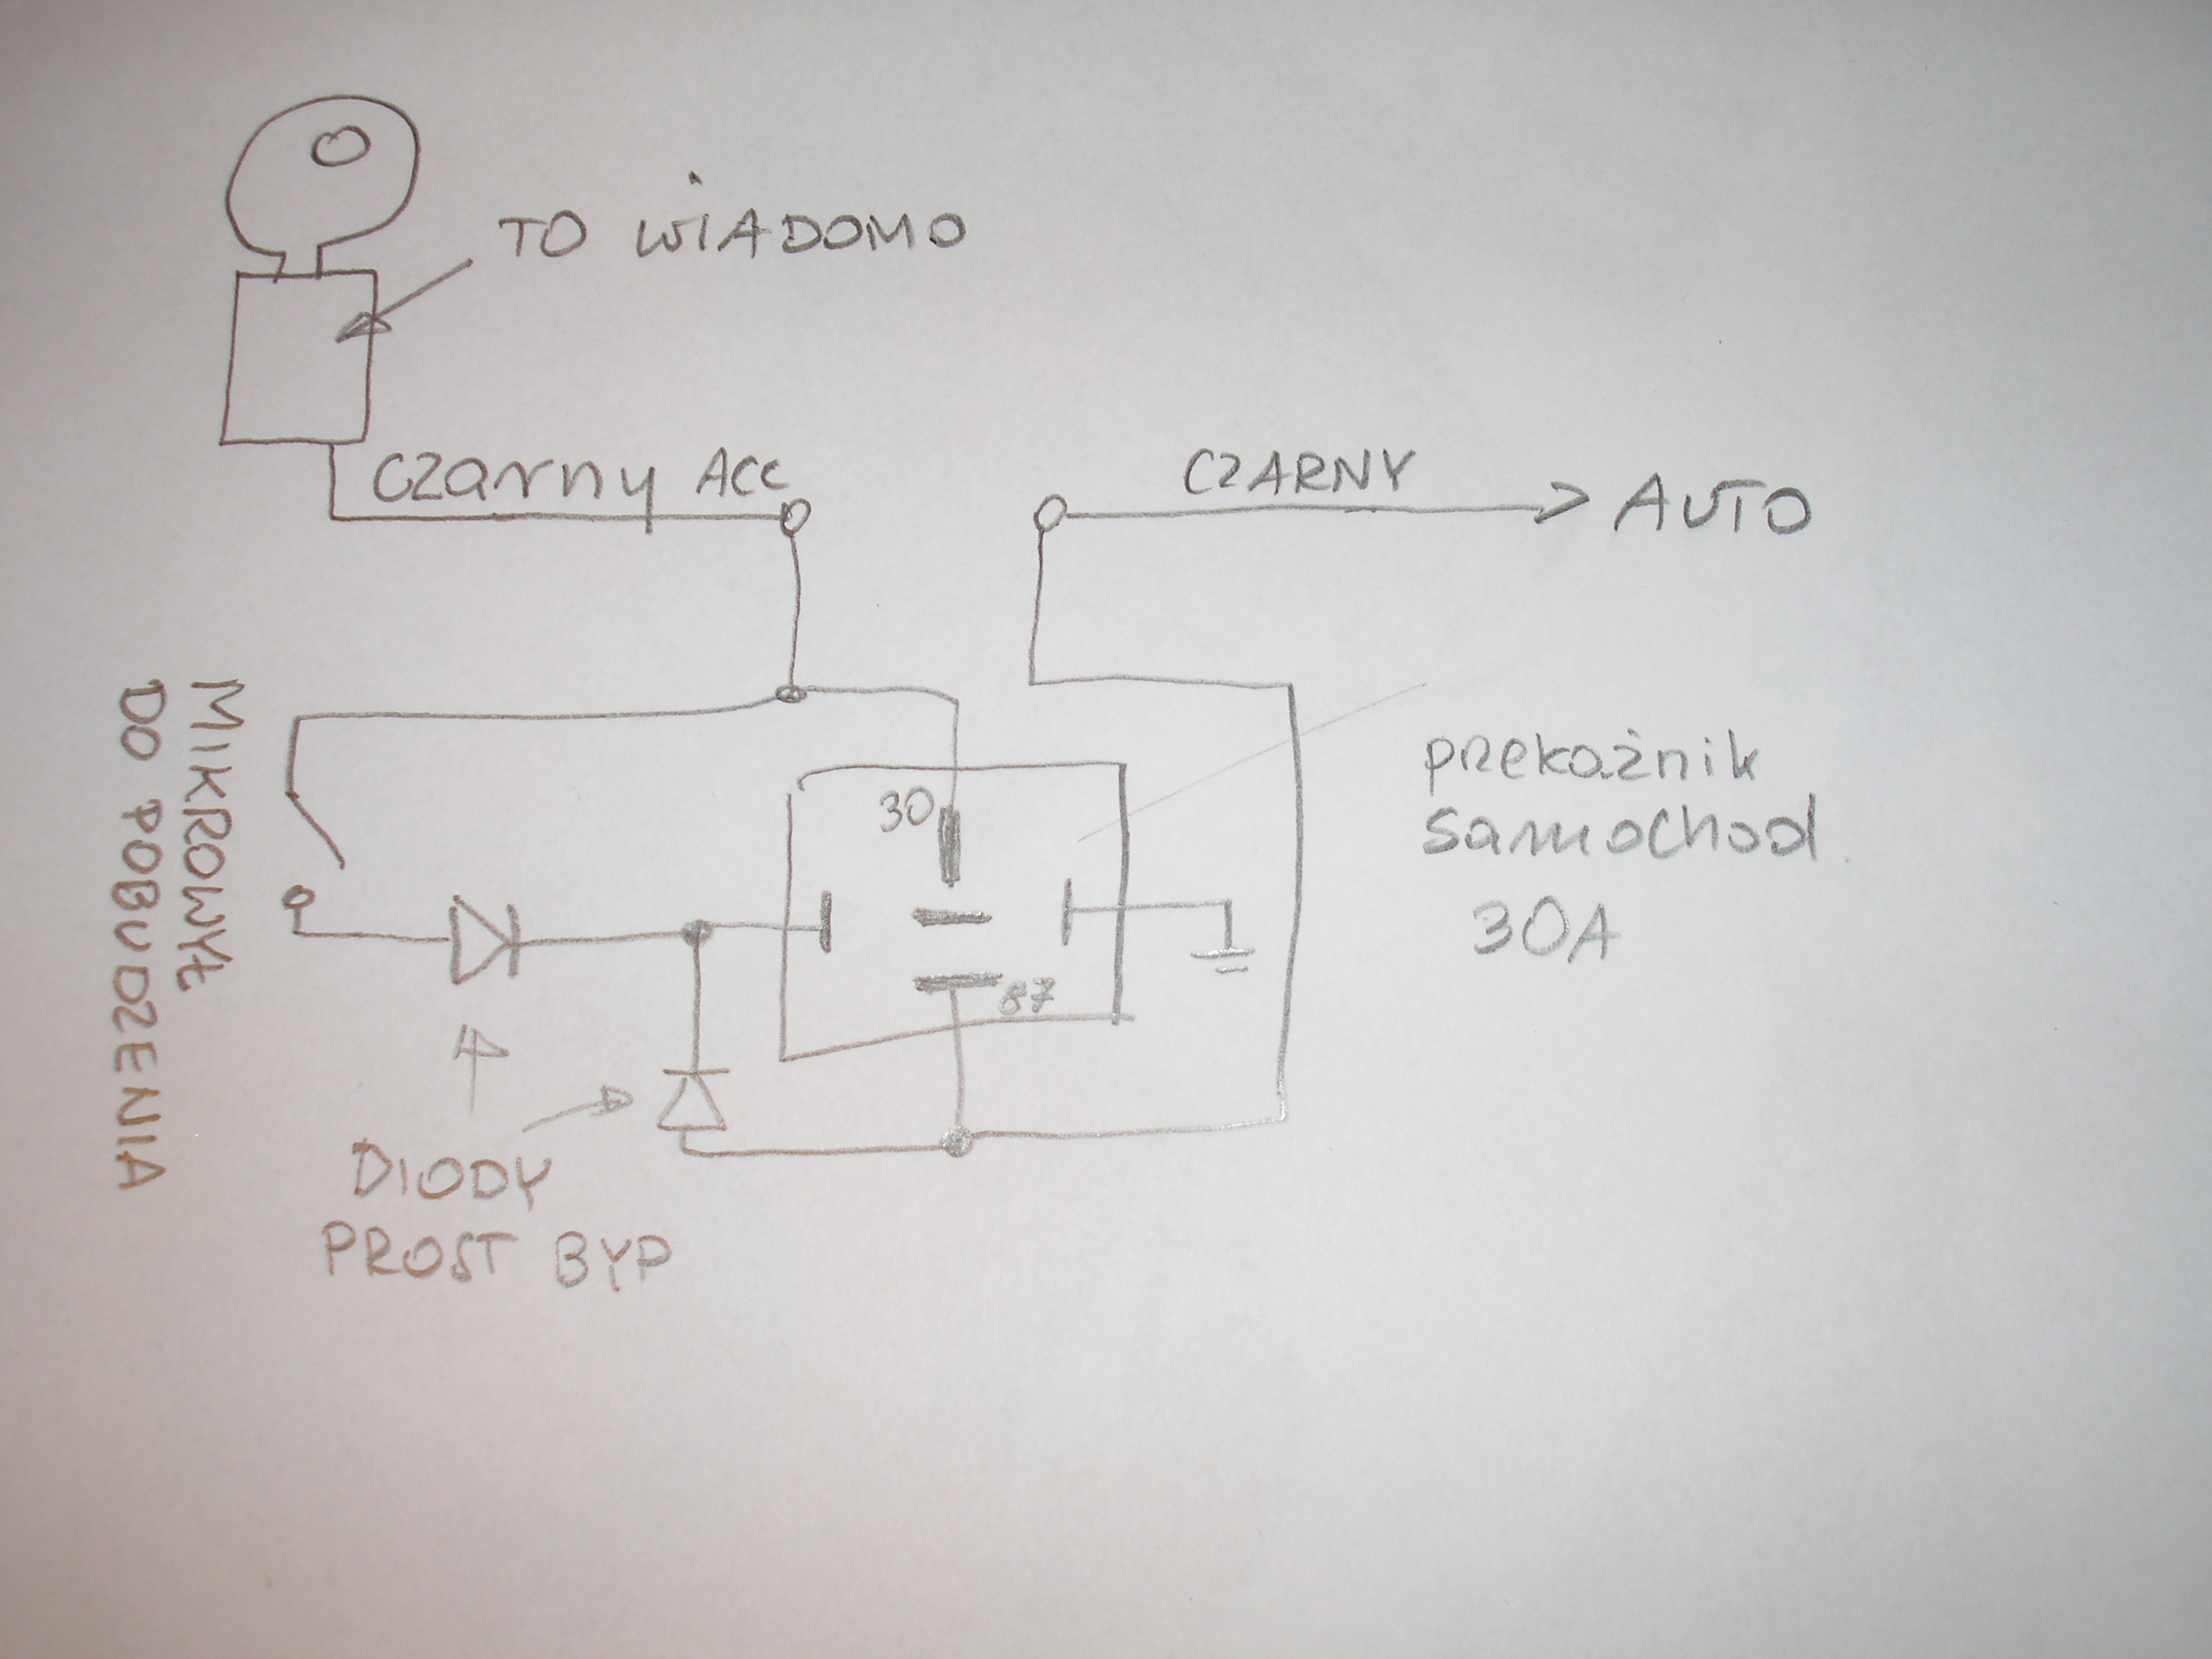 TO WIADOMO
Czarny ACC
CZARNY
AUTO
MIKROWYŁ
DO POBUDZENIA
przekaźnik
samochod.
30A
30
87
DIODY
PROST BYP